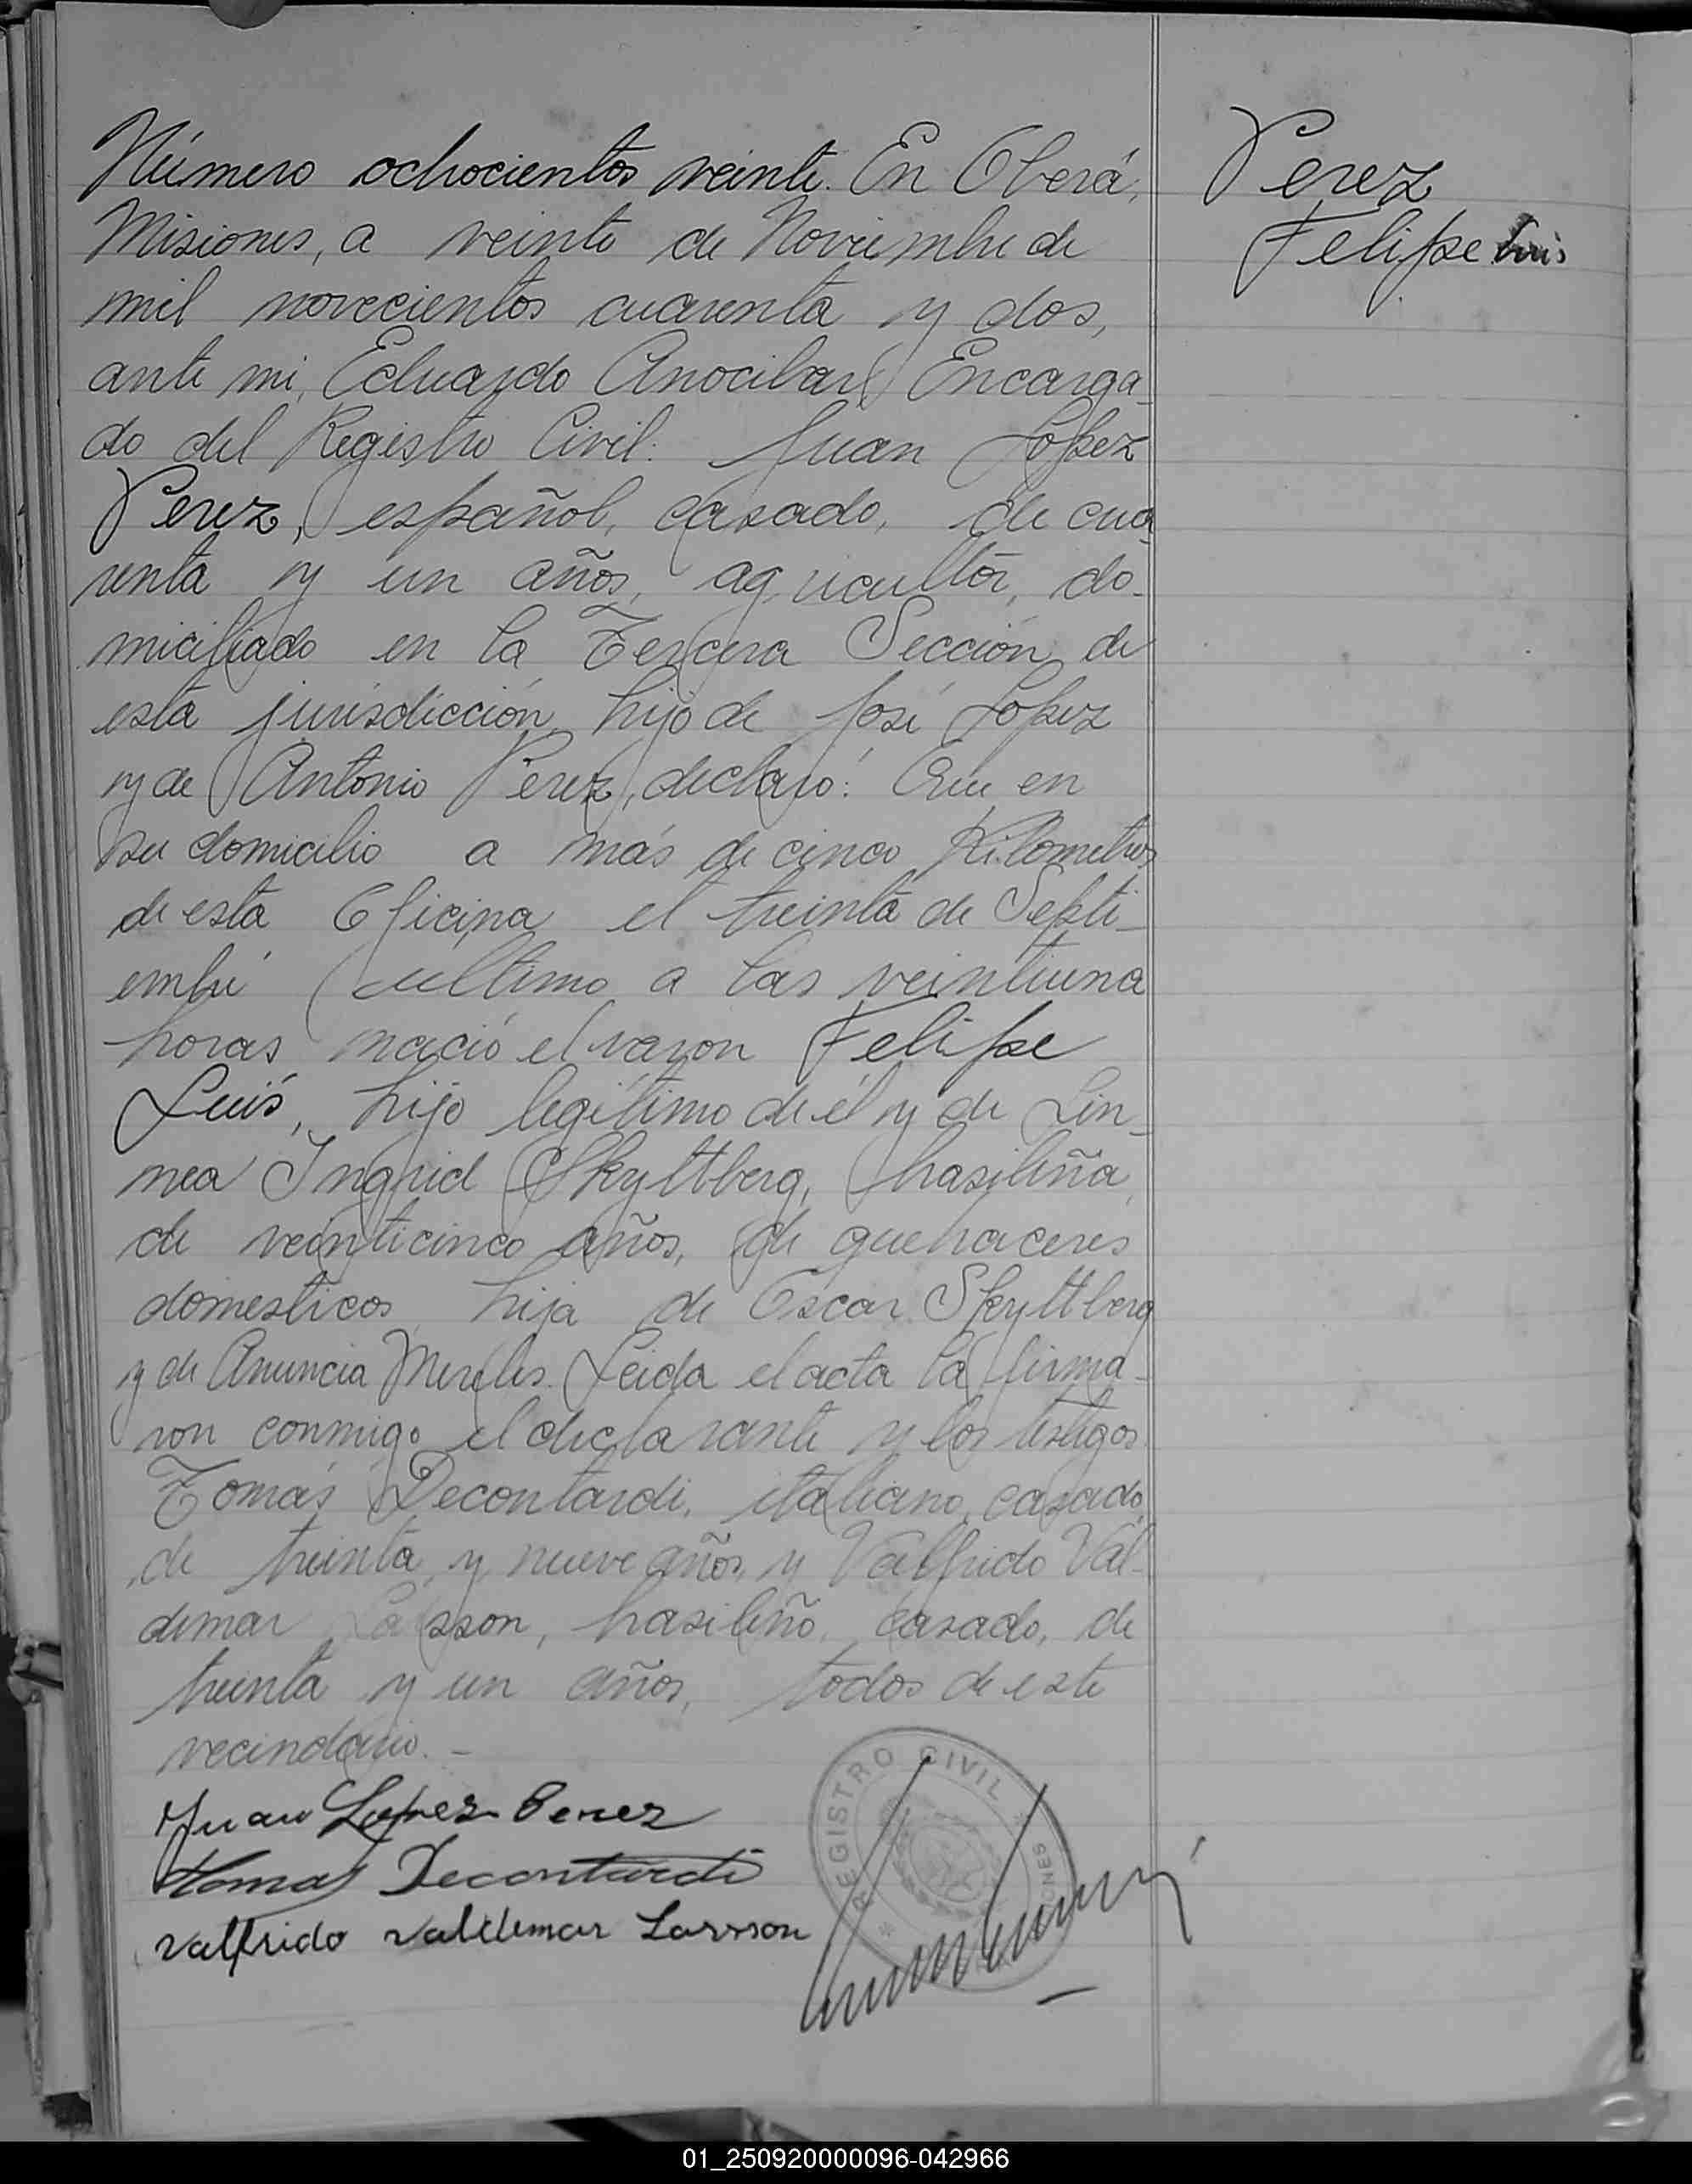 Número ochocientos veinte. En Oberá,
Misiones, a veinte de Noviembre de
mil novecientos cuarenta y dos,
ante mi, Eduardo Anocibar Encarga-
do del Registro Civil: Juan López
Perez, español, casado, de cua-
renta y un años, agricultor, do-
miciliado en la Tercera Sección de
esta jurisdicción, hijo de José López
y de Antonio Perez, declaró: Que en
su domicilio a más de cinco Kilometros
de esta Oficina el treinta de Septi-
embre último a las veintiuna
horas nació el varon Felipe
Luis, hijo legítimo de él y de Lin-
nea Ingrid Skyltberg, brasileña,
de veinticinco años, de quehaceres
domesticos, hija de Oscar Skyltberg
y de Anuncia Mereles. Leida el acta la firma-
ron conmigo el declarante y los testigos
Tomás Decontardi, italiano, casado,
de treinta y nueve años, y Valfrido Val-
demar Larsson, brasileño, casado, de
treinta y un años, todos de este
vecindario.-
Juan Lopez Perez
Tomas Decontardi
Valfrido Valdemar Larsson
REGISTRO CIVIL
Perez
Felipe Luis
01_250920000096-042966